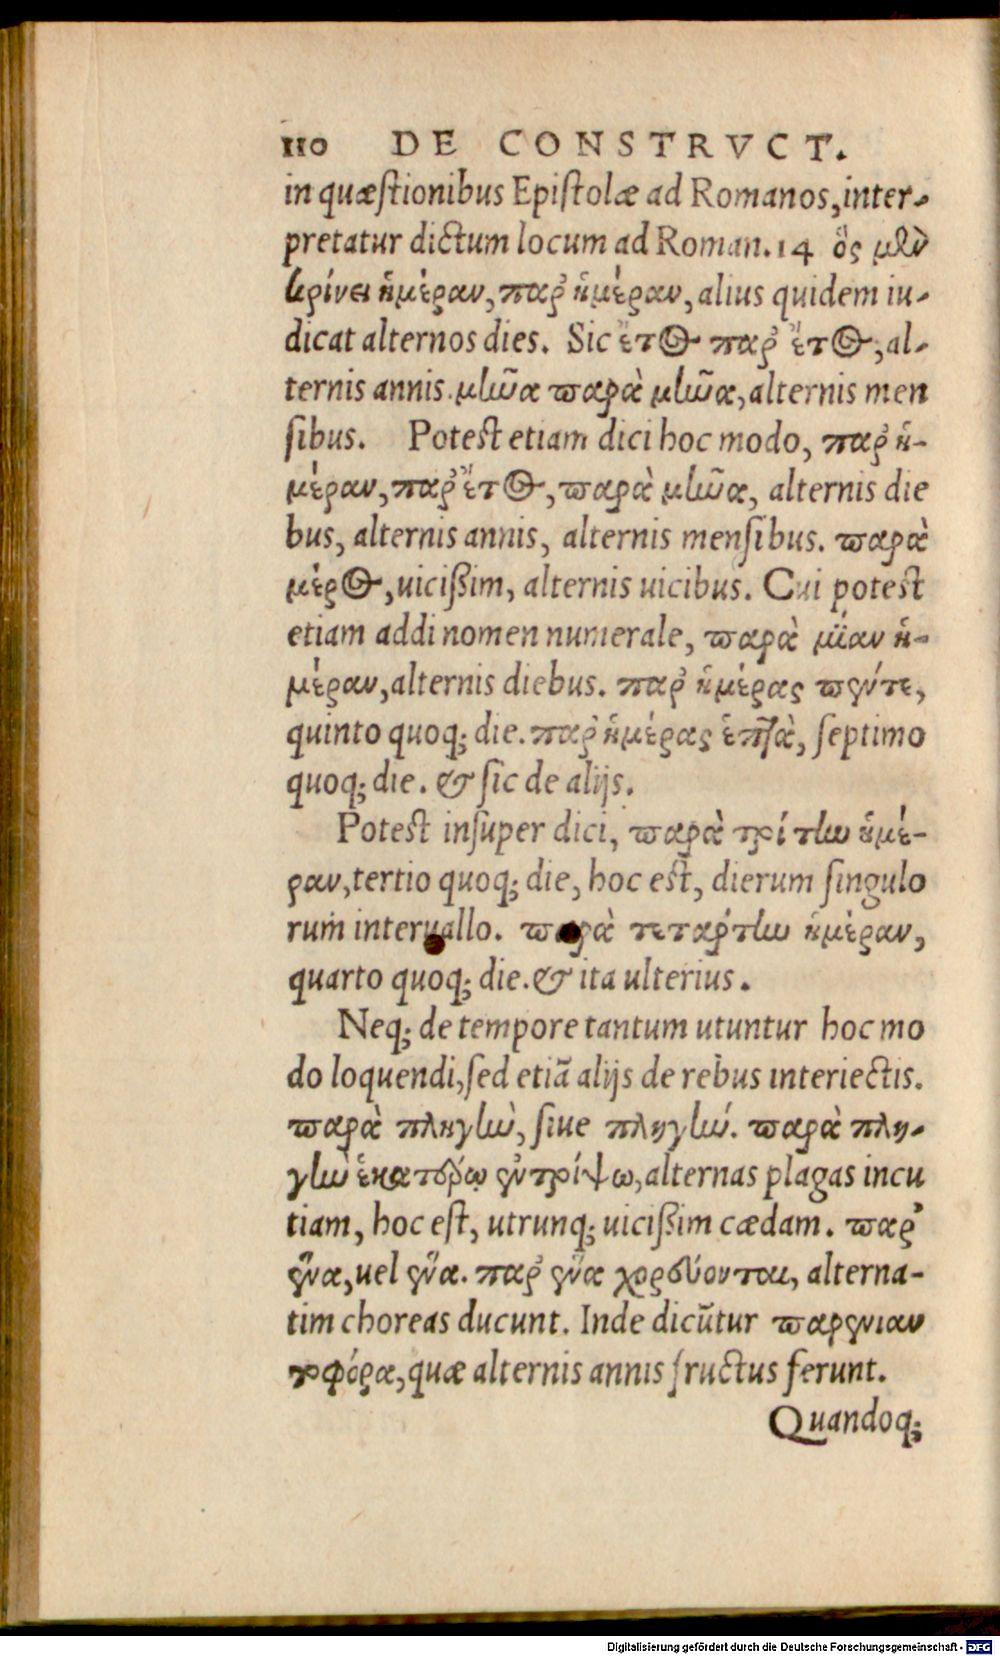 110 DE CONSTRVCT.
in quæstionibus Epistolæ ad Romanos, inter-
pretatur dictum locum ad Roman. 14 ὃς μὲν
κρίνει ἡμέραν, παρ᾽ ἡμέραν, alius quidem iu-
dicat alternos dies. Sic ἔτος παρ᾽ ἔτος, al-
ternis annis. μῆνα παρὰ μῆνα, alternis men
sibus. Potest etiam dici hoc modo, παρ᾽ ἡ-
μέραν, παρ᾽ ἔτος, παρὰ μῆνα, alternis die
bus, alternis annis, alternis mensibus. παρὰ
μέρος, uicißim, alternis uicibus. Cui potest
etiam addi nomen numerale, παρὰ μίαν ἡ-
μέραν, alternis diebus. παρ᾽ ἡμέρας πέντε,
quinto quoq; die. παρ᾽ ἡμέρας ἑπτὰ, septimo
quoq; die. & sic de alijs.
Potest insuper dici, παρὰ τρίτην ἡμέ-
ραν, tertio quoq; die, hoc est, dierum singulo
rum interuallo. παρὰ τετάρτην ἡμέραν,
quarto quoq; die. & ita ulterius.
Neq; de tempore tantum utuntur hoc mo
do loquendi, sed etiā alijs de rebus interiectis.
παρὰ πληγὴν, siue πληγήν. παρὰ πλη-
γὴν ἑκατέρῳ ἐντρίψω, alternas plagas incu
tiam, hoc est, utrunq; uicißim cædam. παρ᾽
ἕνα, uel ἕνα. παρ᾽ ἕνα χορεύονται, alterna-
tim choreas ducunt. Inde dicūtur παρενιαυ
τοφόρα, quæ alternis annis fructus ferunt.
Quandoq;
Digitalisierung gefördert durch die Deutsche Forschungsgemeinschaft - DFG